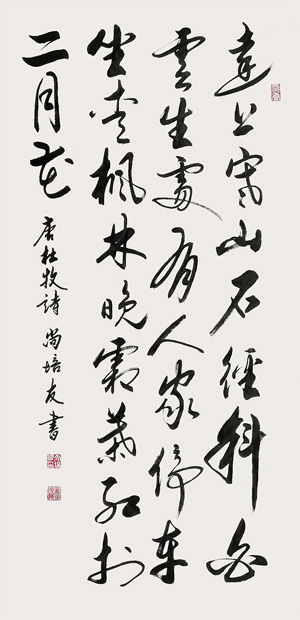 遠上寒山石徑斜白
雲生處有人家停車
坐愛楓林晚霜葉紅於
二月花
唐杜牧詩 尚培友書